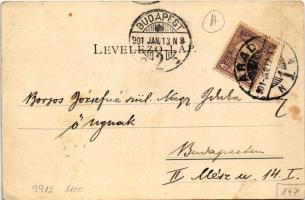 BUDAPEST
901 JAN. 13 N 8
2
A
LEVELEZŐ-LAP.
ARAD
901 JAN. 12
Borsos Józsefné szül. Nagy Ilona
ő ngnak
Budapesten
II Mész u. 14. I.
9912 1100
147